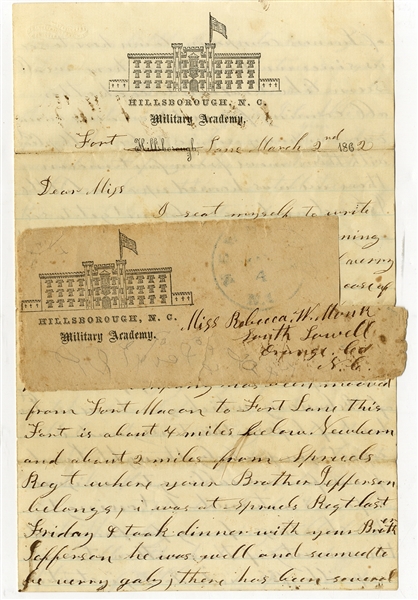 HILLSBOROUGH, N. C.
Military Academy.
Fort Hillsborough, Lane March 2nd 1862
Dear Miss
I seat myself to write
ning
verry
ease of
HILLSBOROUGH, N. C.
Military Academy.
Miss Rebecca, W. Monk
South Lowell
Orange Cd
N. C.
was been mooved
from Fort Macon to Fort Lane this
Fort is about 4 miles below Newbern
and about 2 miles from Spruels
Regt where your Brother Jefferson
belongs, i was at Spruels Regt last
Friday & took dinner with your Broth
Jefferson he was well and seemed to
be verry galy, there has been several